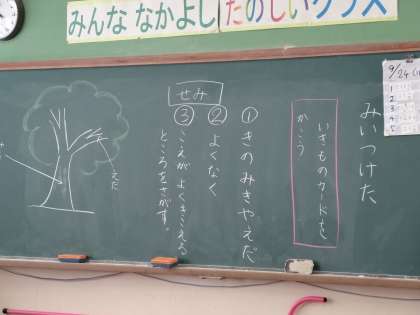 みんな なかよし たのしいクラス
9/24
1
2
3
4
5
みいつけた
いきものカードを
かこう
せみ
① きのみきやえだ
② よくなく
③ こえがよくきこえる
ところをさがす。
えだ